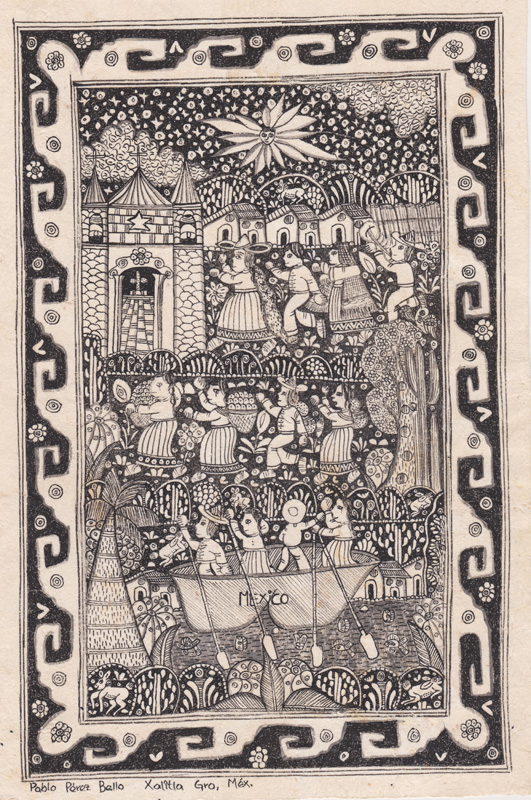 MEXICO
Pablo Pérez Ballo Xalitla Gro, Méx.